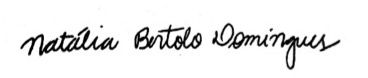 Natália Bertolo Domingues